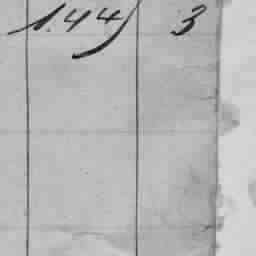 1.44 3